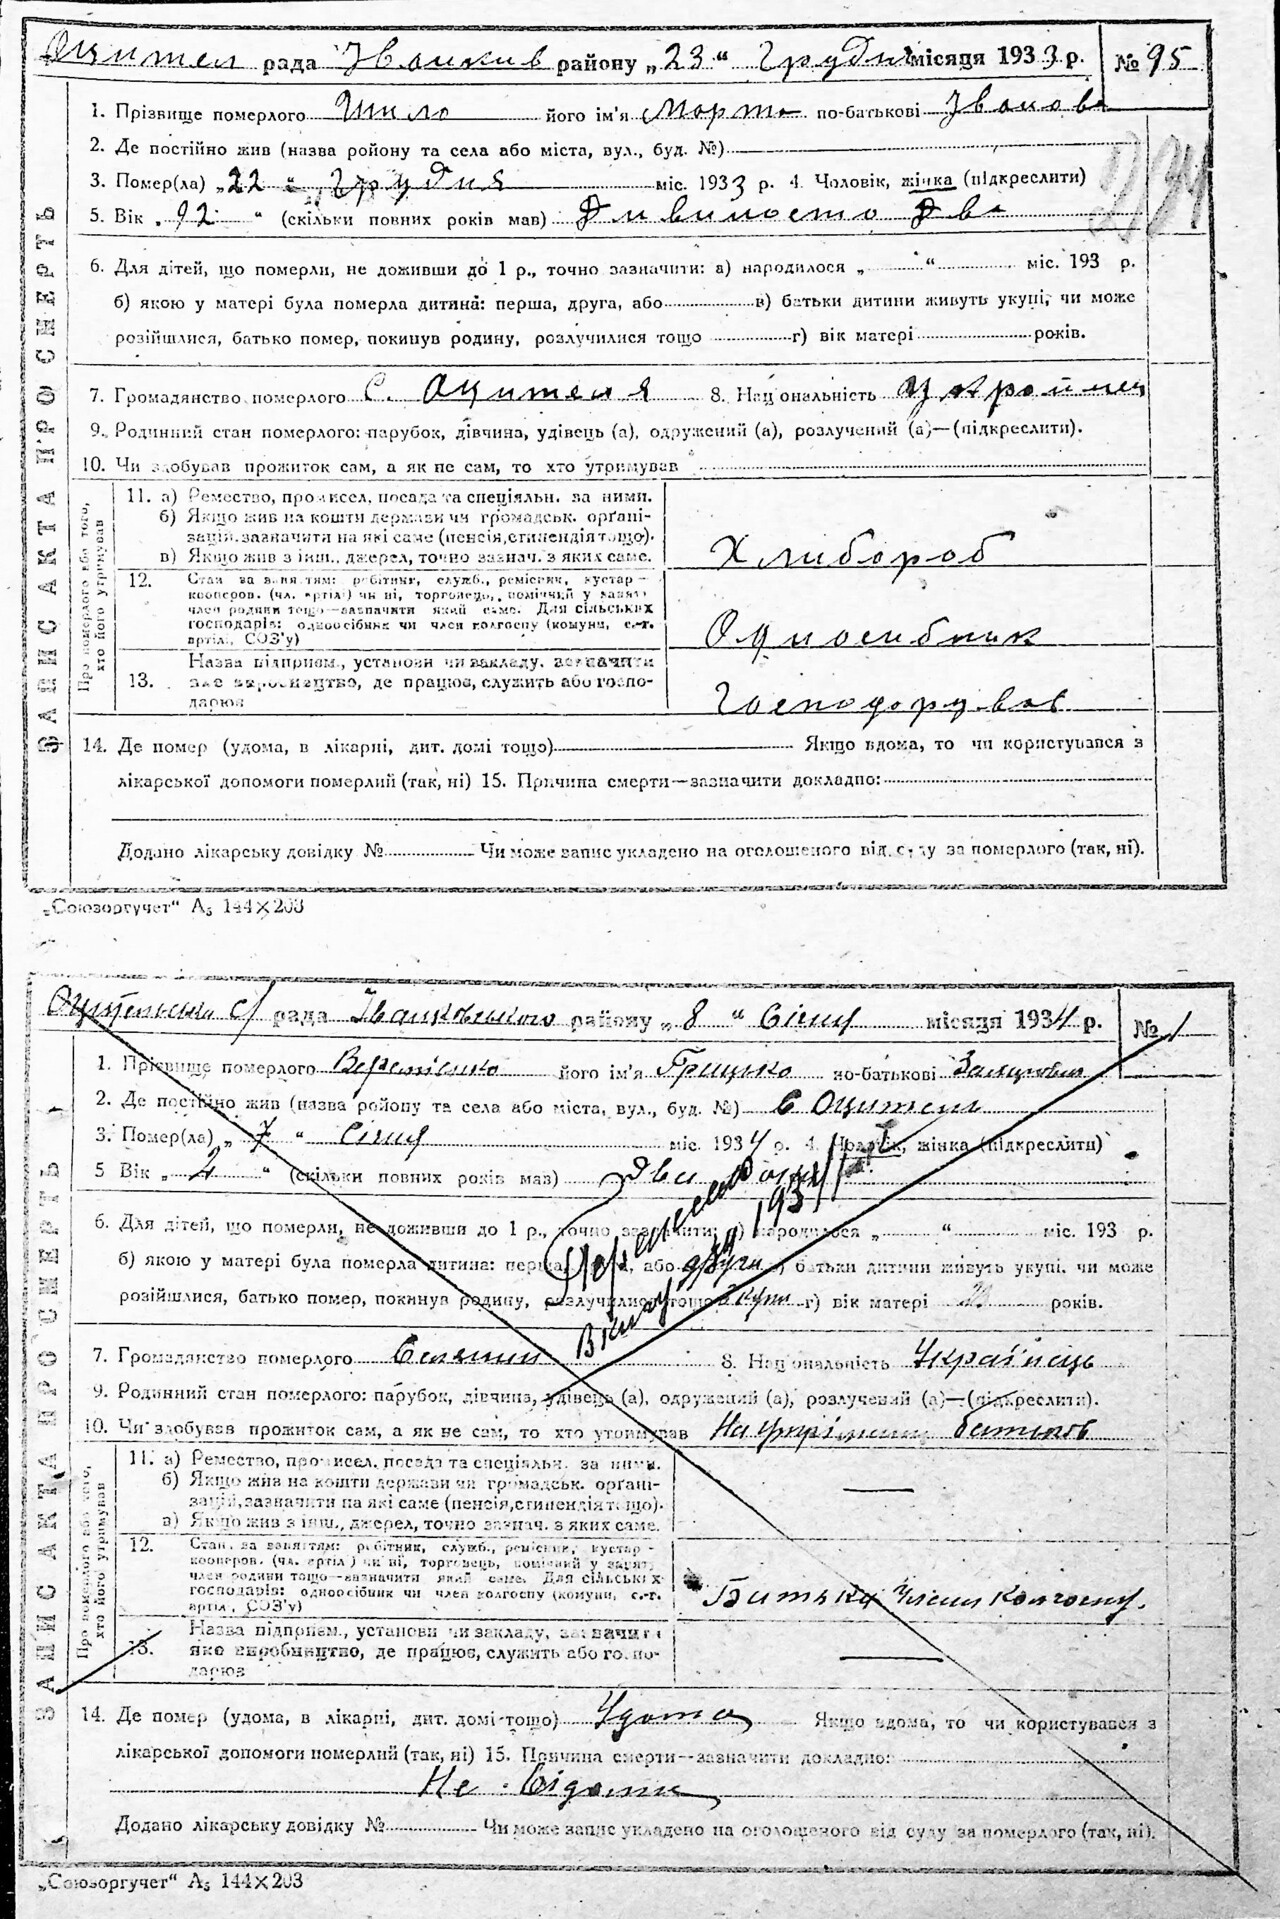 Оцител рада Іванків району „23“ Грудня місяця 1933 р. № 95
1. Прізвище померлого Шило його ім'я Марта по-батькові Іванова
2. Де постійно жив (назва ройону та села або міста, вул., буд. №)
3. Помер(ла) „22“ Грудня міс. 1933 р. 4. Чоловік, жінка (підкреслити)
5. Вік „92“ (скільки повних років мав) Дивиносто Два
6. Для дітей, що померли, не доживши до 1 р., точно зазначити: а) народилося „ “ міс. 193 р.
б) якою у матері була померла дитина: перша, друга, або в) батьки дитини живуть укупі, чи може
розійшлися, батько помер, покинув родину, розлучилися тощо г) вік матері років.
7. Громадянство померлого С. Оцителя 8. Національність
9. Родинний стан померлого: парубок, дівчина, удівець (а), одружений (а), розлучений (а)—(підкреслити).
10. Чи здобував прожиток сам, а як не сам, то хто утримував
ЗАПИС АКТА ПРО СМЕРТЬ
Про померлого або того, хто його утримував
11. а) Ремество, промисел, посада та спеціяльн. за ними.
б) Якщо жив на кошти держави чи громадськ. орґані-
зацій, зазначити на які саме (пенсія, стипендія тощо).
в) Якщо жив з інш. джерел, точно зазнач. з яких саме.
Хлибороб
12. Стан за заняттям: робітник, служб., ремісник, кустар-
кооперов. (чл. артілі) чи ні, торговець, помічний у занят.
член родини тощо—зазначити який саме. Для сільських
господарів: одноосібник чи член колгоспу (комуни, с.-г.
артілі, СОЗ'у)
Односибник
13. Назва підприєм., установи чи закладу, зазначити
яке виробництво, де працює, служить або госпо-
дарює
Господорував
14. Де помер (удома, в лікарні, дит. домі тощо) Якщо вдома, то чи користувався з
лікарської допомоги померлий (так, ні) 15. Причина смерти—зазначити докладно:
Додано лікарську довідку № Чи може запис укладено на оголошеного від суду за померлого (так, ні).
„Союзоргучет“ А₅ 144×203
рада Іванковського району „8“ Січня місяця 1934 р. № 1
1. Прізвище померлого його ім'я Грицько по-батькові
2. Де постійно жив (назва ройону та села або міста, вул., буд. №) С Оцитель
3. Помер(ла) „7“ Січня міс. 1934 р. 4. Чоловік, жінка (підкреслити)
5 Вік „2“ (скільки повних років мав) Два
6. Для дітей, що померли, не доживши до 1 р., точно зазначити: а) народилося „ “ міс. 193 р.
б) якою у матері була померла дитина: перша, друга, або друга в) батьки дитини живуть укупі, чи може
розійшлися, батько помер, покинув родину, розлучилися тощо г) вік матері років.
В книгу 1934
7. Громадянство померлого Селянин 8. Національність Українець
9. Родинний стан померлого: парубок, дівчина, удівець (а), одружений (а), розлучений (а)—(підкреслити).
10. Чи здобував прожиток сам, а як не сам, то хто утримував На утриманні батьків
ЗАПИС АКТА ПРО СМЕРТЬ
Про померлого або того, хто його утримував
11. а) Ремество, промисел, посада та спеціяльн. за ними.
б) Якщо жив на кошти держави чи громадськ. орґані-
зацій, зазначити на які саме (пенсія, стипендія тощо).
в) Якщо жив з інш., джерел, точно зазнач. з яких саме.
12. Стан за заняттям: робітник, служб., ремісник, кустар-
кооперов. (чл. артілі) чи ні, торговець, помічний у занят.
член родини тощо—зазначити який саме. Для сільських
господарів: одноосібник чи член колгоспу (комуни, с.-г.
артілі, СОЗ'у)
Батько член колгоспу.
13. Назва підприєм., установи чи закладу, зазначити
яке виробництво, де працює, служить або госпо-
дарює
14. Де помер (удома, в лікарні, дит. домі тощо) Удома Якщо вдома, то чи користувався з
лікарської допомоги померлий (так, ні) 15. Причина смерти—зазначити докладно:
Не відома
Додано лікарську довідку № Чи може запис укладено на оголошеного від суду за померлого (так, ні).
„Союзоргучет“ А₅ 144×203